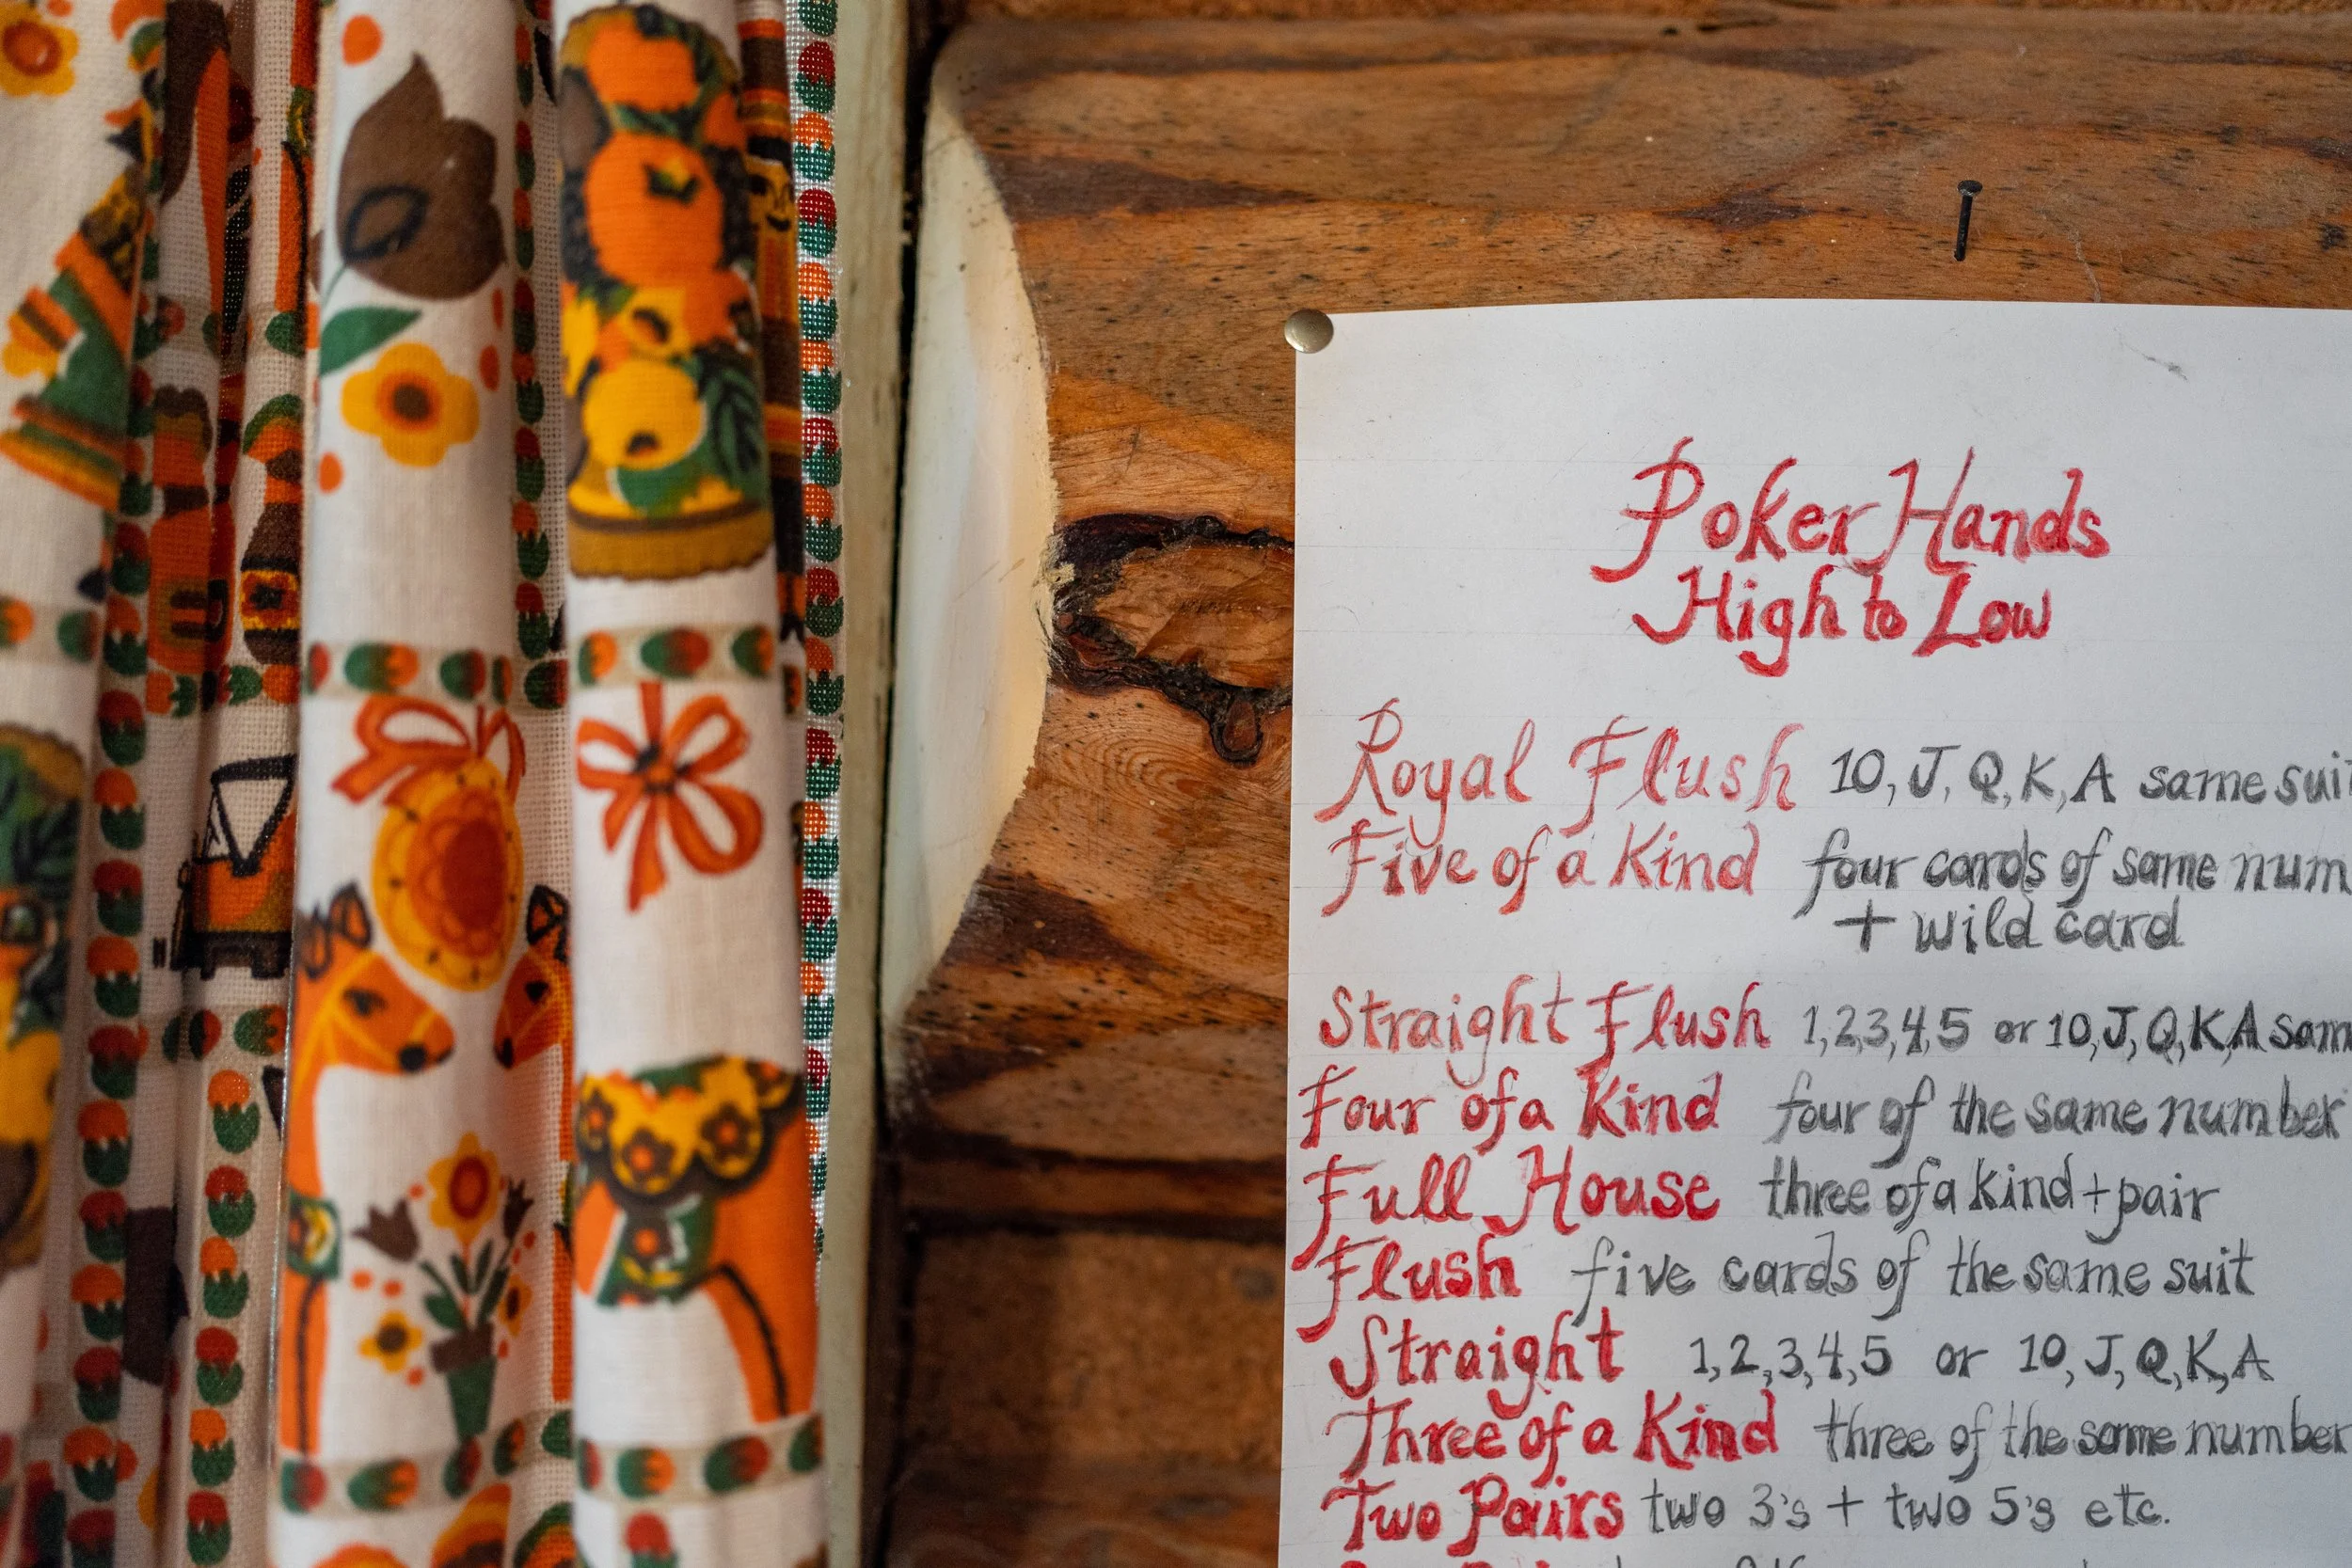 Poker Hands
High to Low
Royal Flush 10, J, Q, K, A same suit
Five of a Kind four cards of same num
+ wild card
Straight Flush 1,2,3,4,5 or 10,J,Q,K,A sam
Four of a Kind four of the same number
Full House three of a kind + pair
Flush five cards of the same suit
Straight 1,2,3,4,5 or 10, J, Q, K, A
Three of a Kind three of the same number
Two Pairs two 3's + two 5's etc.